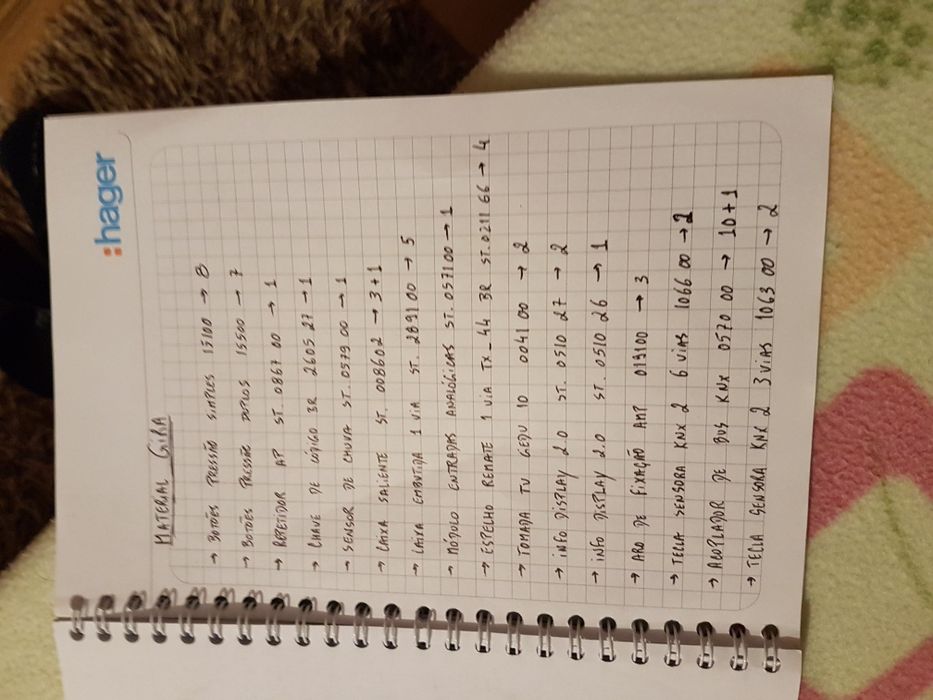 :hager
MATERIAL GIRA
→ BOTÕES PRESSÃO SIMPLES 15100 → 8
→ BOTÕES PRESSÃO DUPLOS 15500 → 7
→ REPETIDOR AP ST. 0867 00 → 1
→ CHAVE DE CÓDIGO BR 2605 27 → 1
→ SENSOR DE CHUVA ST. 0579 00 → 1
→ CAIXA SALIENTE ST. 008602 → 3+1
→ CAIXA EMBUTIDA 1 VIA ST. 289100 → 5
→ MÓDULO ENTRADAS ANALÓGICAS ST. 057100 → 1
→ ESPELHO REMATE 1 VIA TX_44 BR ST. 0211 66 → 4
→ TOMADA TV GEDU 10 0041 00 → 2
→ INFO DISPLAY 2.0 ST. 0510 27 → 2
→ INFO DISPLAY 2.0 ST. 0510 26 → 1
→ ARO DE FIXAÇÃO ANT 019100 → 3
→ TECLA SENSORA KNX 2 6 VIAS 1066 00 → 2
→ ACOPLADOR DE BUS KNX 0570 00 → 10+1
→ TECLA SENSORA KNX 2 3 VIAS 1063 00 → 2